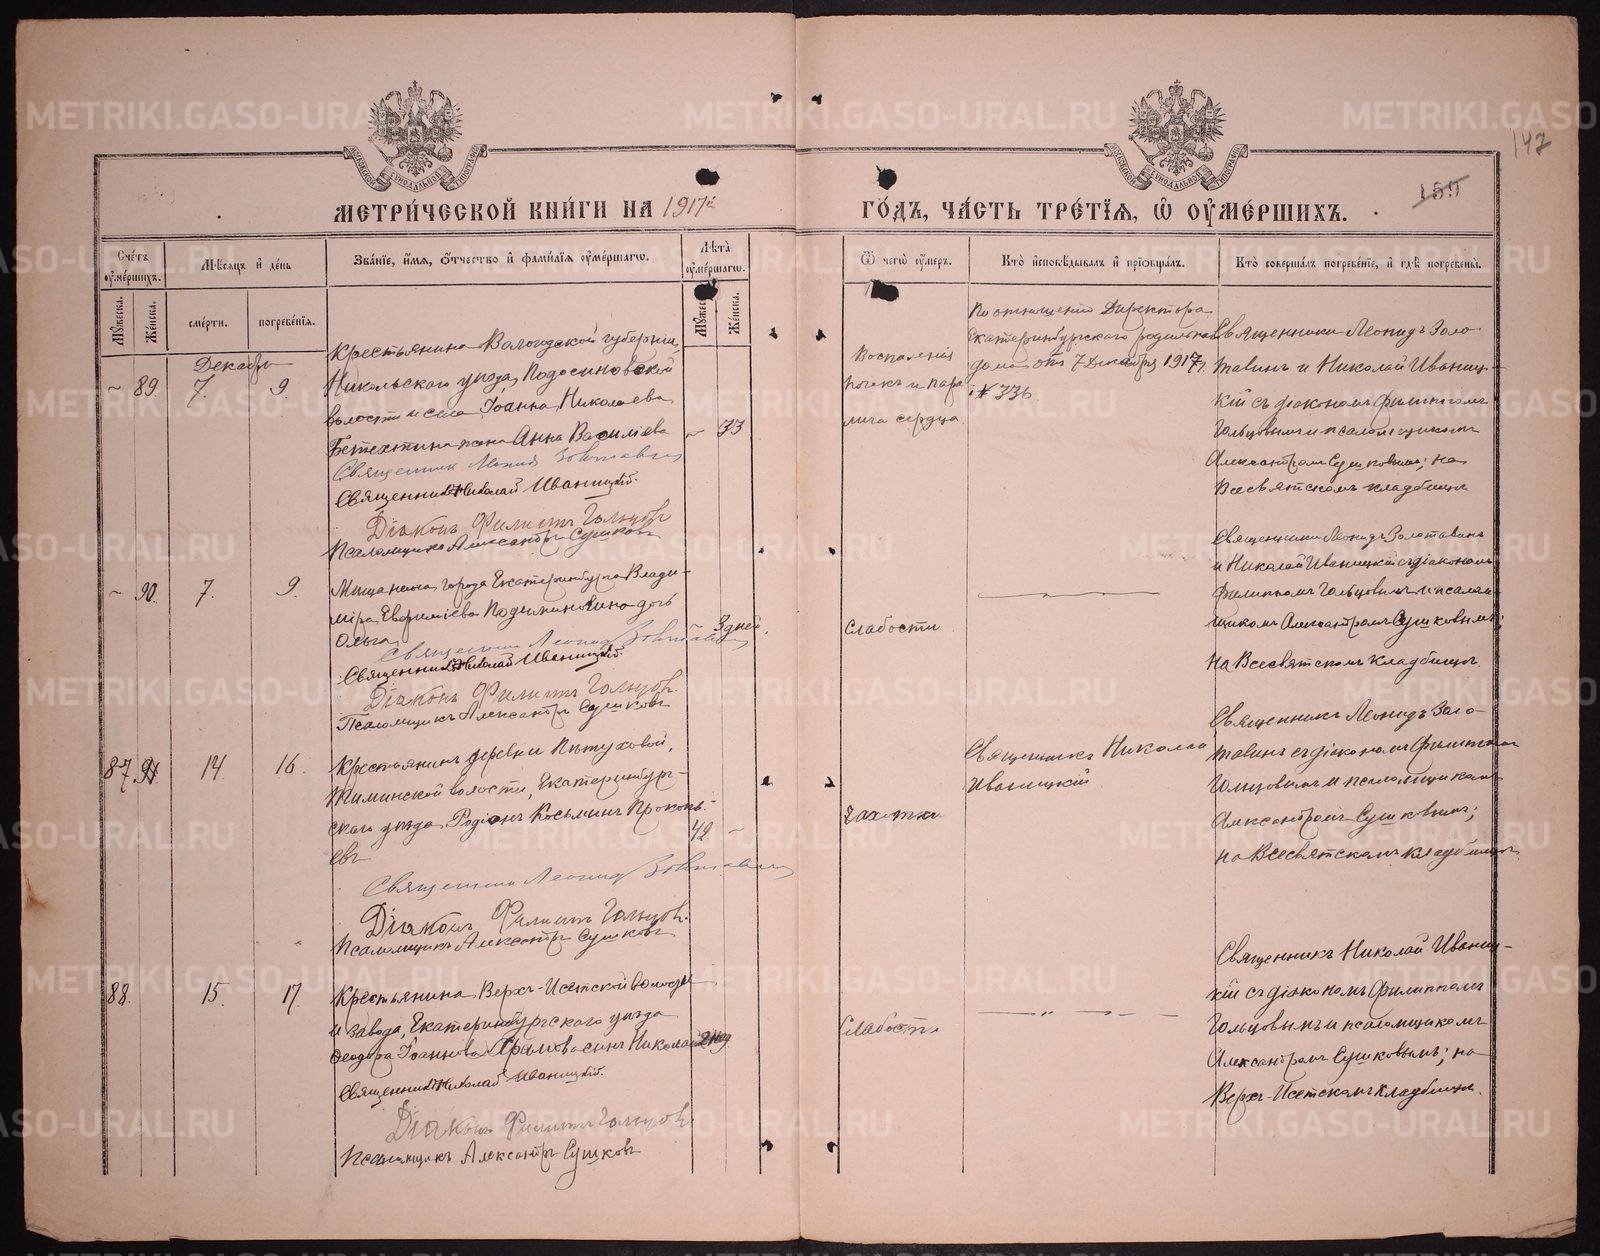 147
159
МЕТРИ́ЧЕСКОЙ КНИ́ГИ НА 1917й
ГО́ДЪ, ЧА́СТЬ ТРЕ́ТЇѦ, Ѡ҆ ОУ҆МЕ́РШИХЪ.
Сче́тъ оу҆ме́ршихъ.
Мꙋжеска. Же́нска.
Мѣ́сяцъ и҆ де́нь
сме́рти. погребе́нїѧ.
Зва́нїе, и҆́мѧ, ѻ҆́тчество и҆ фами́лїѧ оу҆ме́ршагѡ.
Лѣ́та оу҆ме́ршагѡ.
Мꙋжеск Же́нска.
Ѿ чегѡ̀ оу҆́меръ.
Кто̀ и҆сповѣ́дывалъ и҆ прїѡбща́лъ.
Кто̀ соверша́лъ погребе́нїе, и҆ гдѣ̀ погребены̀.
Декабрь
~ 89 7. 9.
Крестьянина Вологодской губернiи,
Никольскаго уѣзда, Подосиновской
волости и села Iоанна Николаева
Бетехтина жена Анна Васильева
~ 33
Священникъ Леонидъ Золотавинъ
Священникъ Николай Иваницкiй.
Дiаконъ Филиппъ Гольцовъ
Псаломщикъ Александръ Сушковъ
Воспаленiя
почекъ и пара
лича сердца.
По отношенiю Директора
Екатеринбургскаго родильнаго
дома отъ 7 Декабря 1917 г.
№ 336
Священники Леонидъ Золо-
тавинъ и Николай Иваниц-
кiй съ дiакономъ Филиппомъ
Гольцовымъ и псаломщикомъ
Александромъ Сушковымъ; на
Всесвятскомъ кладбищѣ
~ 90. 7. 9.
Мѣщанина города Екатеринбурга Влади-
мiра Евфимiева дочь
Ольга
~ 3 дней.
Священникъ Леонидъ Золотавинъ
Священникъ Николай Иваницкiй.
Дiаконъ Филиппъ Гольцовъ.
Псаломщикъ Александръ Сушковъ
Слабости
Священники Леонидъ Золотавинъ
и Николай Иваницкiй съ дiакономъ
Филиппомъ Гольцовымъ и псалом-
щикомъ Александромъ Сушковымъ;
на Всесвятскомъ кладбищѣ.
87. 91 14 16
Крестьянинъ деревни Пѣтуховой,
волости, Екатеринбург-
скаго уѣзда Родiонъ Косьминъ Прокопь-
евъ
42 ~
Священникъ Леонидъ Золотавинъ
Дiаконъ Филиппъ Гольцовъ.
Псаломщикъ Александръ Сушковъ
Чахотки
Священникъ Николай
Иваницкiй
Священникъ Леонидъ Золо-
тавинъ съ дiакономъ Филиппомъ
Гольцовымъ и псаломщикомъ
Александромъ Сушковымъ;
на Всесвятскомъ кладбищѣ.
88. 15. 17.
Крестьянина Верхъ-Исетской волости
и завода, Екатеринбургскаго уѣзда
Феодора Iоаннова сынъ Николай
Священникъ Николай Иваницкiй.
Дiаконъ Филиппъ Гольцовъ
Псаломщикъ Александръ Сушковъ
Слабости
Священникъ Николай Иваниц-
кiй съ дiакономъ Филиппомъ
Гольцовымъ и псаломщикомъ
Александромъ Сушковымъ; на
Верхъ-Исетскомъ кладбищѣ.
METRIKI.GASO-URAL.RU